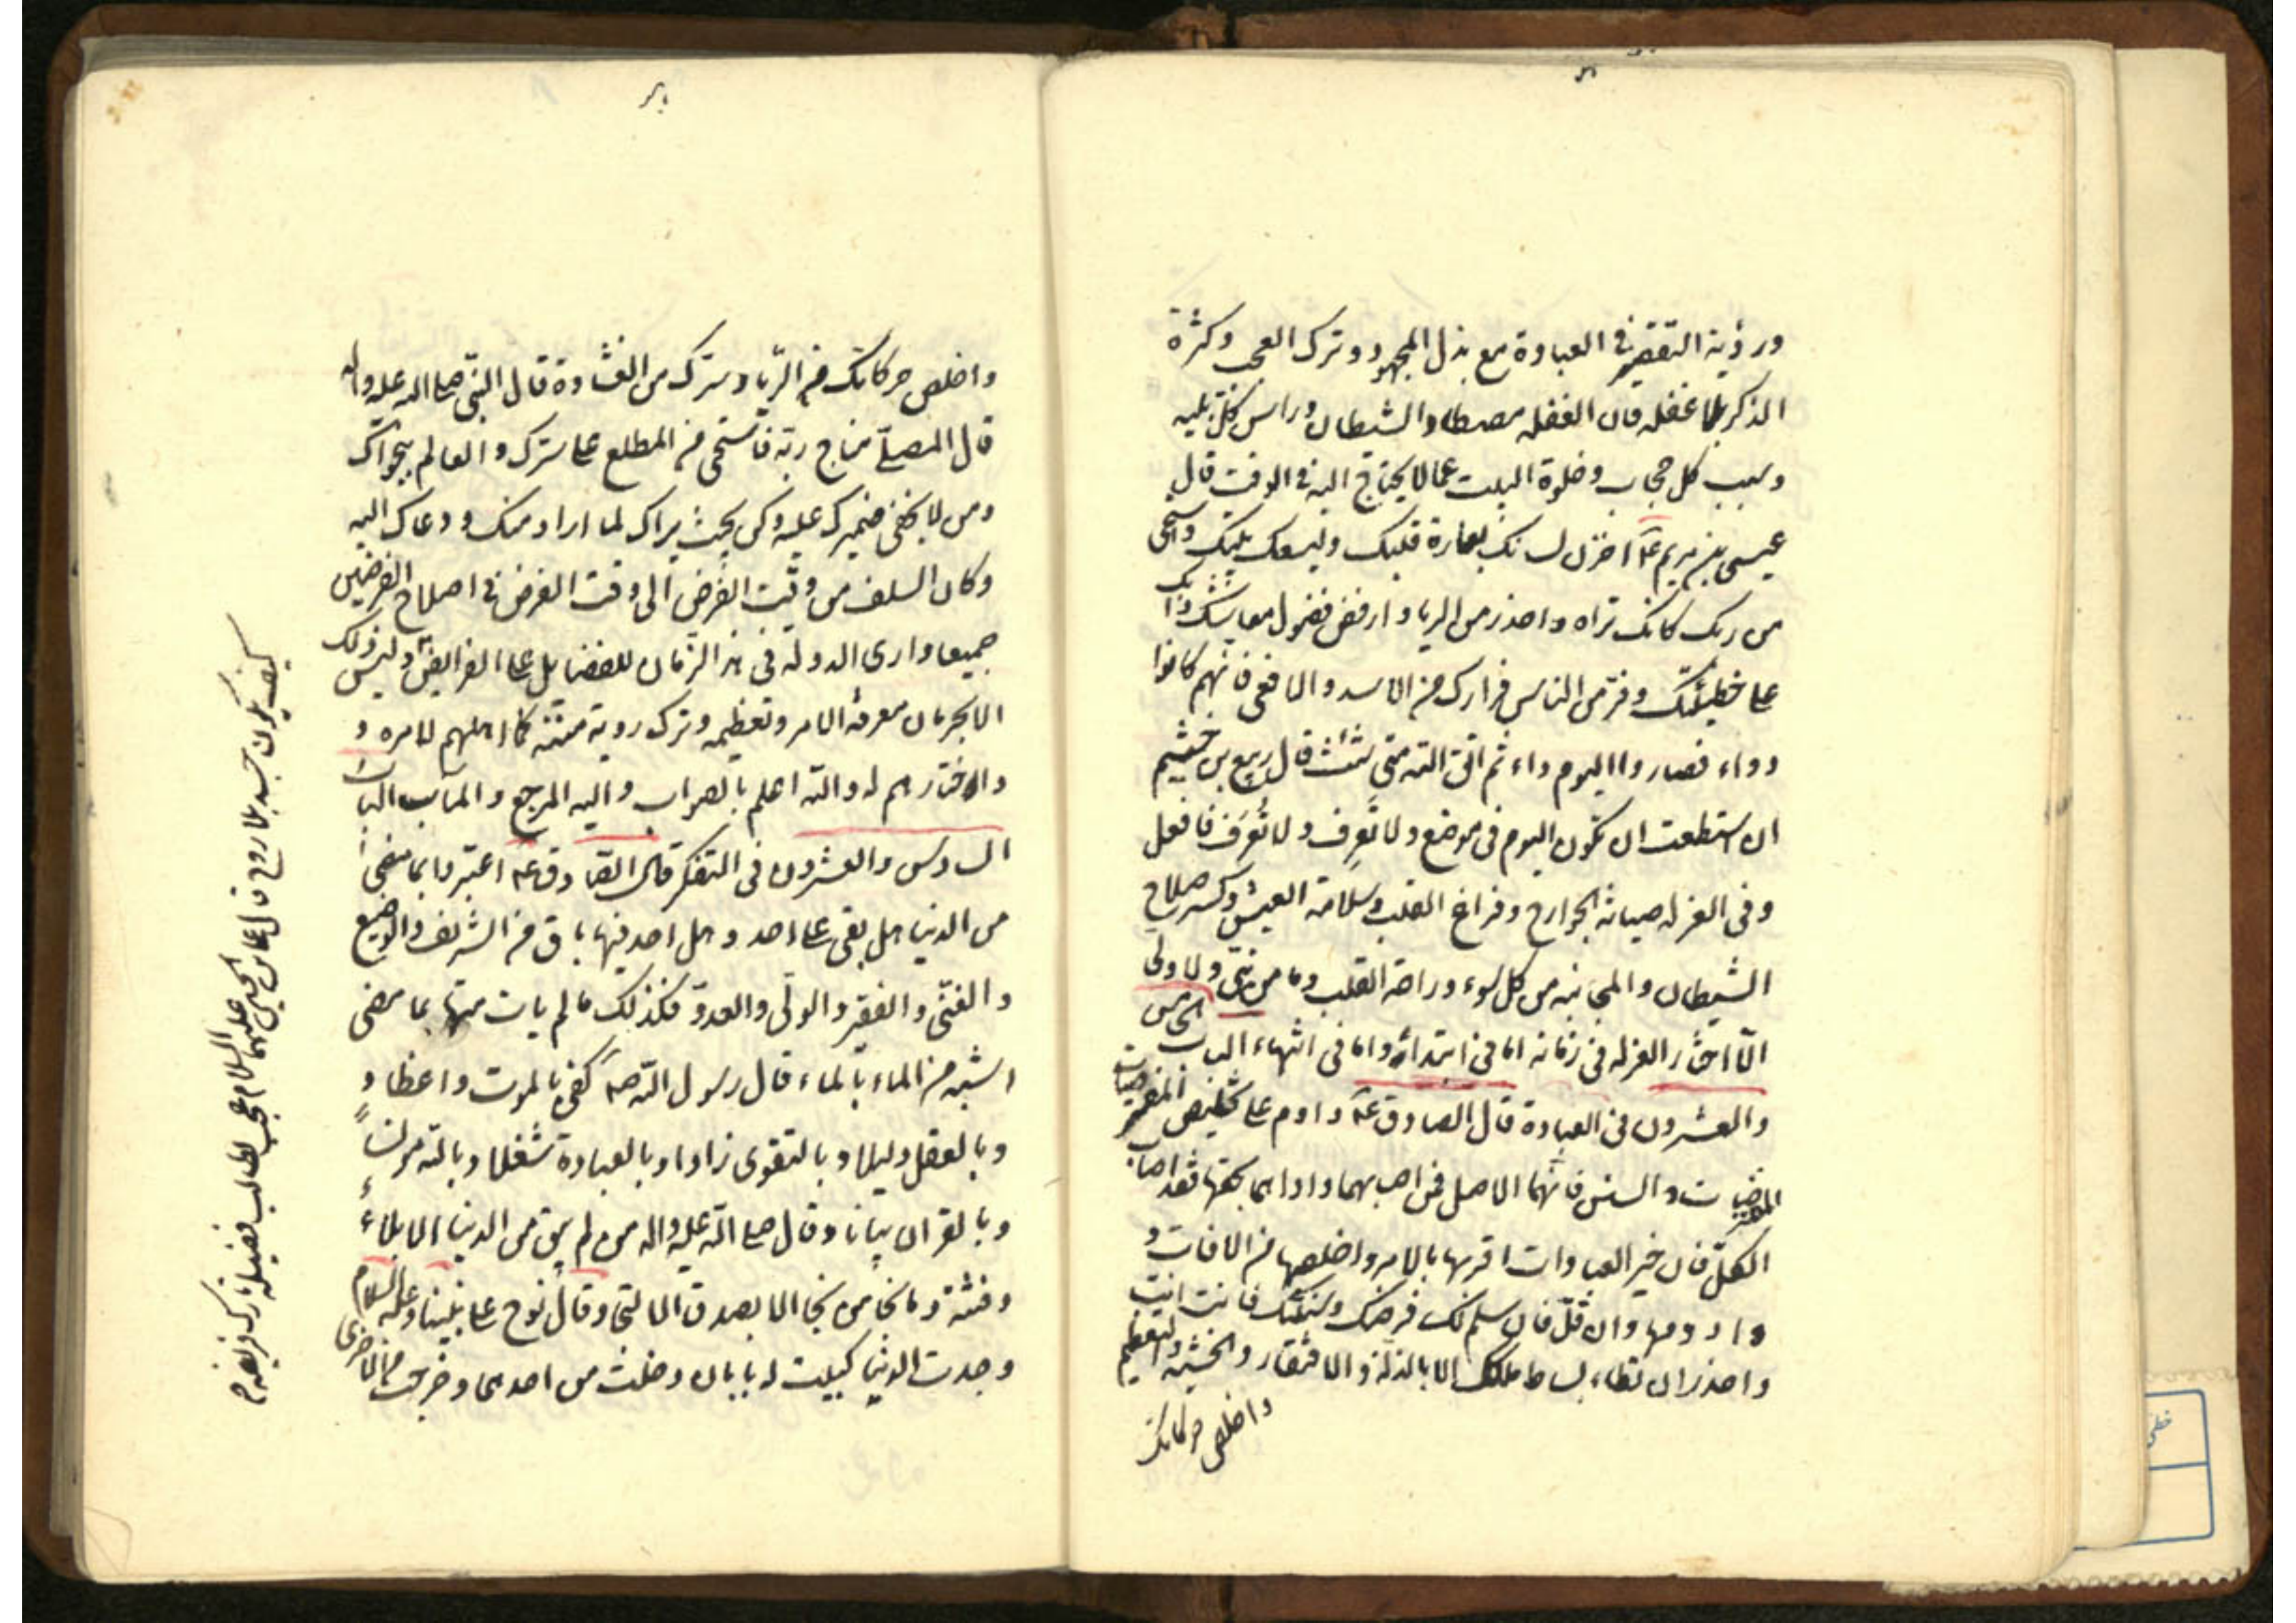 ورؤية التقصير في العبادة مع بذل المجهود وترك العجب وكثرة
الذكر بلا غفلة فان الغفله مصطاد الشيطان وراس كل بليه
وسبب كل حجاب وخلوة البيت عما لا يحتاج اليه في الوقت قال
عيسى بن مريم عم اخزن لسانك لعمارة قلبك وليسعك بيتك واستحى
من ربك كانك تراه واحذر من الرياء وارفض فضول معاشك وابك
على خطيئتك وفر من الناس فرارك من الاسد والافعى فانهم كانوا
دواء فصاروا اليوم داء ثم الق الله متى شئت قال ربيع بن خثيم
ان استطعت ان تكون اليوم في موضع ولا تَعرِف ولا تُعرَف فافعل
وفي العزله صيانة الجوارح وفراغ القلب وسلامة العيش وكسر سلاح
الشيطان والمجانبه من كل سوء وراحة القلب وما من نبي ولا ولى
الا اختار العزله في زمانه اما في ابتدائه واما في انتهاء الباب الخامس
والعشرون في العبادة قال الصادق عم داوم على تخليص المفروضات
والسنن فانهما الاصل فمن اصابهما واداهما بحقهما فقد اصاب
الكل فان خير العبادات اقربها بالامر واخلصها من الافات و
وادومها وان قل فان سلم لك فرضك وسنتك فانت انت
واحذر ان تطاء بساط ملكك الا بالذلة والافتقار والخشية والتعظيم
واخلص حركاتك
واخلص حركاتك من الرياء وسرك من القساوة قال النبي صلى الله عليه واله
قال المصلي مناج ربه فاستحى من المطلع على سرك والعالم بنجواك
وما يخفى ضميرك عليه وكن بحيث يراك لما اراد منك ودعاك اليه
وكان السلف من وقت الفرض الى وقت الفرض في اصلاح الفرضين
جميعا وارى الدولة في هذا الزمان للفضايل على الفرايض وليس ذلك
الا بحرمان معرفة الامر وتعظيمه وترك روية منته بما اهلهم لامره و
واختارهم له والله اعلم بالصواب واليه المرجع والمآب الباب
السادس والعشرون في التفكر قال الصادق عم اعتبروا بما مضى
من الدنيا هل بقى على احد وهل احد فيها باق من الشريف والوضيع
والغني والفقير والولي والعدو فكذلك ما لم يات منها بما مضى
اشبه من الماء بالماء قال رسول الله صم كفى بالموت واعظا و
وبالعقل دليلا وبالتقوى زادا وبالعبادة شغلا وبالله مونسا
وبالقران بيانا وقال صلى الله عليه واله من لم يبق من الدنيا الا بلاء
وفتنة وما نجا من نجا الا بصدق الالتجا وقال نوح على نبينا وعليه السلام
وجدت الدنيا كبيت له بابان دخلت من احدهما وخرجت من الاخرى
كيف يكون جسد بلا روح قال على بن الحسين عليهما السلام عجب لطالب فضيلة تارك فريضة